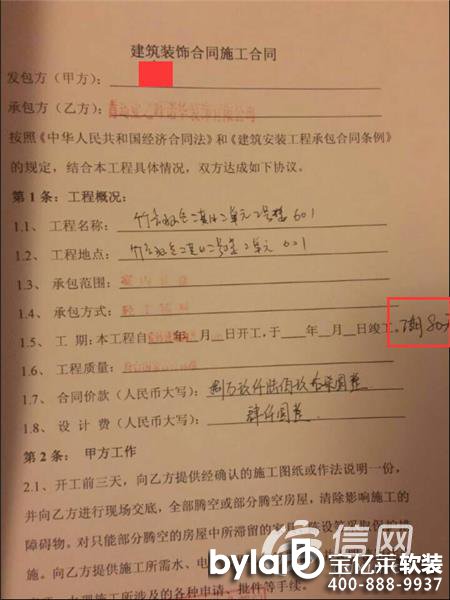 建筑装饰合同施工合同
发包方（甲方）：
承包方（乙方）：
按照《中华人民共和国经济合同法》和《建筑安装工程承包合同条例》
的规定，结合本工程具体情况，双方达成如下协议。
第 1 条：工程概况：
1.1、工程名称：二单元 601
1.2、工程地点：二单元 601
1.3、承包范围：
1.4、承包方式：
1.5、工 期：本工程自 年 月 日开工，于 年 月 日竣工。
1.6、工程质量：
1.7、合同价款（人民币大写）：
1.8、设 计 费（人民币大写）：肆仟圆整
第 2 条： 甲方工作
2.1、开工前三天，向乙方提供经确认的施工图纸或作法说明一份，
并向乙方进行现场交底，全部腾空或部分腾空房屋，清除影响施工的
障碍物。对只能部分腾空的房屋中所滞留的家具、陈设等采取保护措
施。向乙方提供施工所需水、电
施工所涉及的各种申请、批件等手续。
信网
bylai 宝亿莱软装
400-888-9937